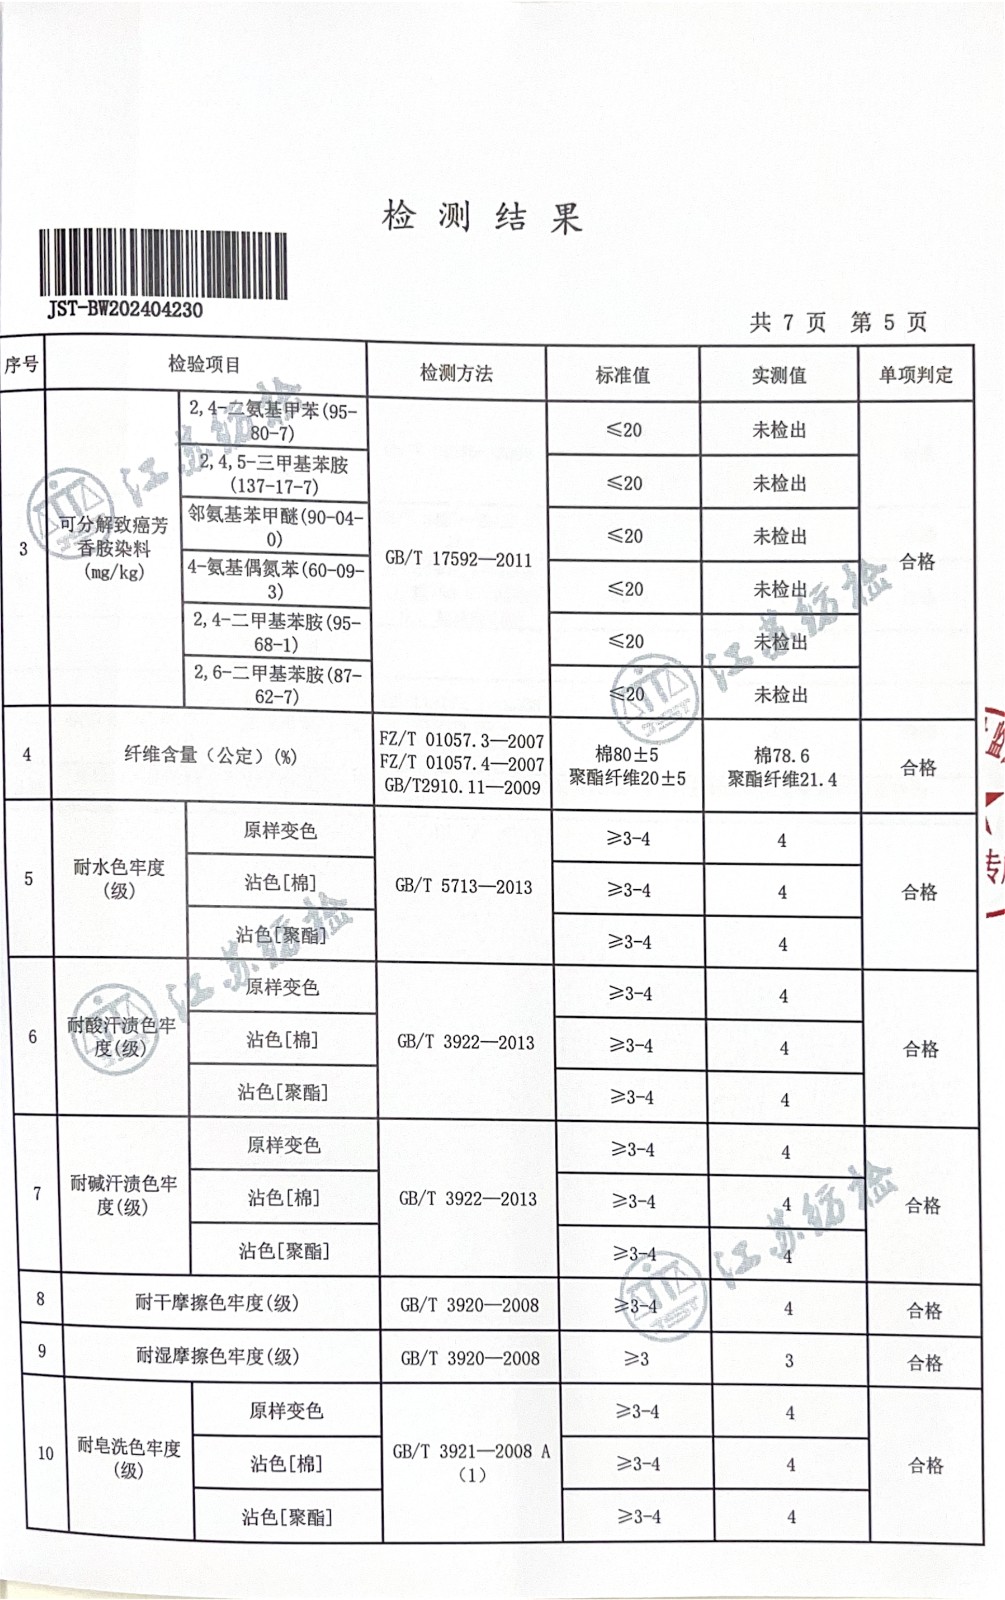 检测结果
JST-BW202404230
共 7 页 第 5 页
序号 检验项目 检测方法 标准值 实测值 单项判定
3 可分解致癌芳香胺染料(mg/kg) GB/T 17592—2011 合格
2,4-二氨基甲苯(95-80-7) ≤20 未检出
2,4,5-三甲基苯胺(137-17-7) ≤20 未检出
邻氨基苯甲醚(90-04-0) ≤20 未检出
4-氨基偶氮苯(60-09-3) ≤20 未检出
2,4-二甲基苯胺(95-68-1) ≤20 未检出
2,6-二甲基苯胺(87-62-7) ≤20 未检出
4 纤维含量（公定）(%) FZ/T 01057.3—2007 FZ/T 01057.4—2007 GB/T2910.11—2009 棉80±5 聚酯纤维20±5 棉78.6 聚酯纤维21.4 合格
5 耐水色牢度(级) GB/T 5713—2013 合格
原样变色 ≥3-4 4
沾色[棉] ≥3-4 4
沾色[聚酯] ≥3-4 4
6 耐酸汗渍色牢度(级) GB/T 3922—2013 合格
原样变色 ≥3-4 4
沾色[棉] ≥3-4 4
沾色[聚酯] ≥3-4 4
7 耐碱汗渍色牢度(级) GB/T 3922—2013 合格
原样变色 ≥3-4 4
沾色[棉] ≥3-4 4
沾色[聚酯] ≥3-4 4
8 耐干摩擦色牢度(级) GB/T 3920—2008 ≥3-4 4 合格
9 耐湿摩擦色牢度(级) GB/T 3920—2008 ≥3 3 合格
10 耐皂洗色牢度(级) GB/T 3921—2008 A（1） 合格
原样变色 ≥3-4 4
沾色[棉] ≥3-4 4
沾色[聚酯] ≥3-4 4
江苏纺检
江苏纺检
江苏纺检
江苏纺检